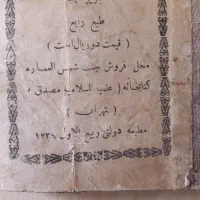 طبع رابع
( قیمت دوریالست )
محل فروش جنب شمس العماره
کتابخانه ( علمیه اسلامیه مصدق )
( تهران )
مطبعه دولتی ربیع الاول ۱۳۳۶